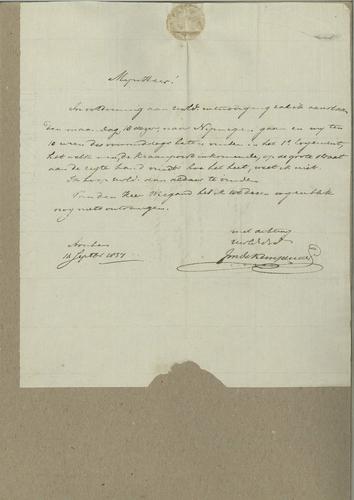 Mijn Heer!
In voldoening aan uwEd. uitnoodiging zal ik aanstaan
den maandag 18 dezer, naar Nijmegen gaan en mij ten
10 uren des voormiddags laten vinden in het 1e Logement,
het welk men de Kraanpoort inkomende, op de groote straat
aan de regte hand vindt hoe het heet, weet ik niet.
Ik hoop uwEd. dan aldaar te vinden.
Van den Heer Wiegand heb ik tot dezen oogenblik
nog niets ontvangen.
met achting
UwEd. D.
Arnhem
14 Septbr 1837